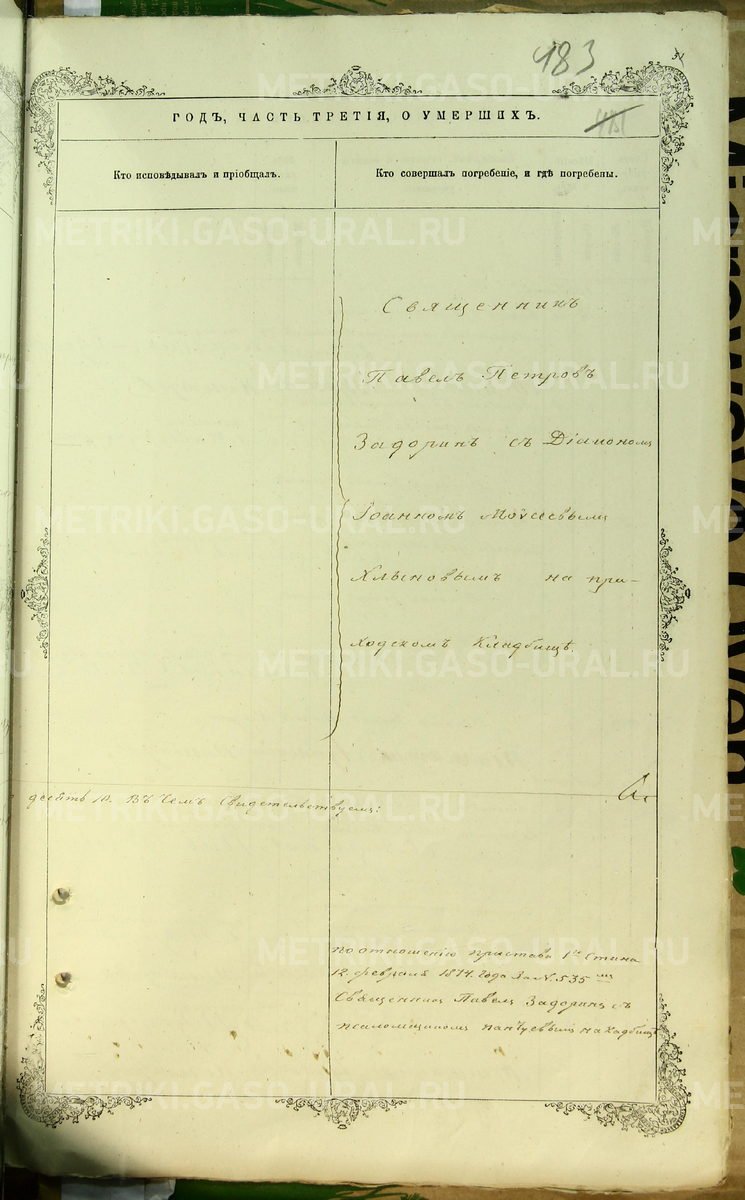 183
ГОДЪ, ЧАСТЬ ТРЕТІЯ, О УМЕРШИХЪ.
Кто исповѣдывалъ и пріобщалъ.
Кто совершалъ погребеніе, и гдѣ погребены.
Священникъ
Павелъ Петровъ
Задоринъ съ Діакономъ
Іоанномъ Моѵсеевымъ
Хлыновымъ на при-
ходскомъ Кладбищѣ.
Въ чемъ Свидетельствуемъ:
по отношенію пристава 1го Стана
12 февраля 1874 года за N. 535
Священникъ Павелъ Задоринъ съ
псаломщикомъ на кладбищѣ
METRIKI.GASO-URAL.RU